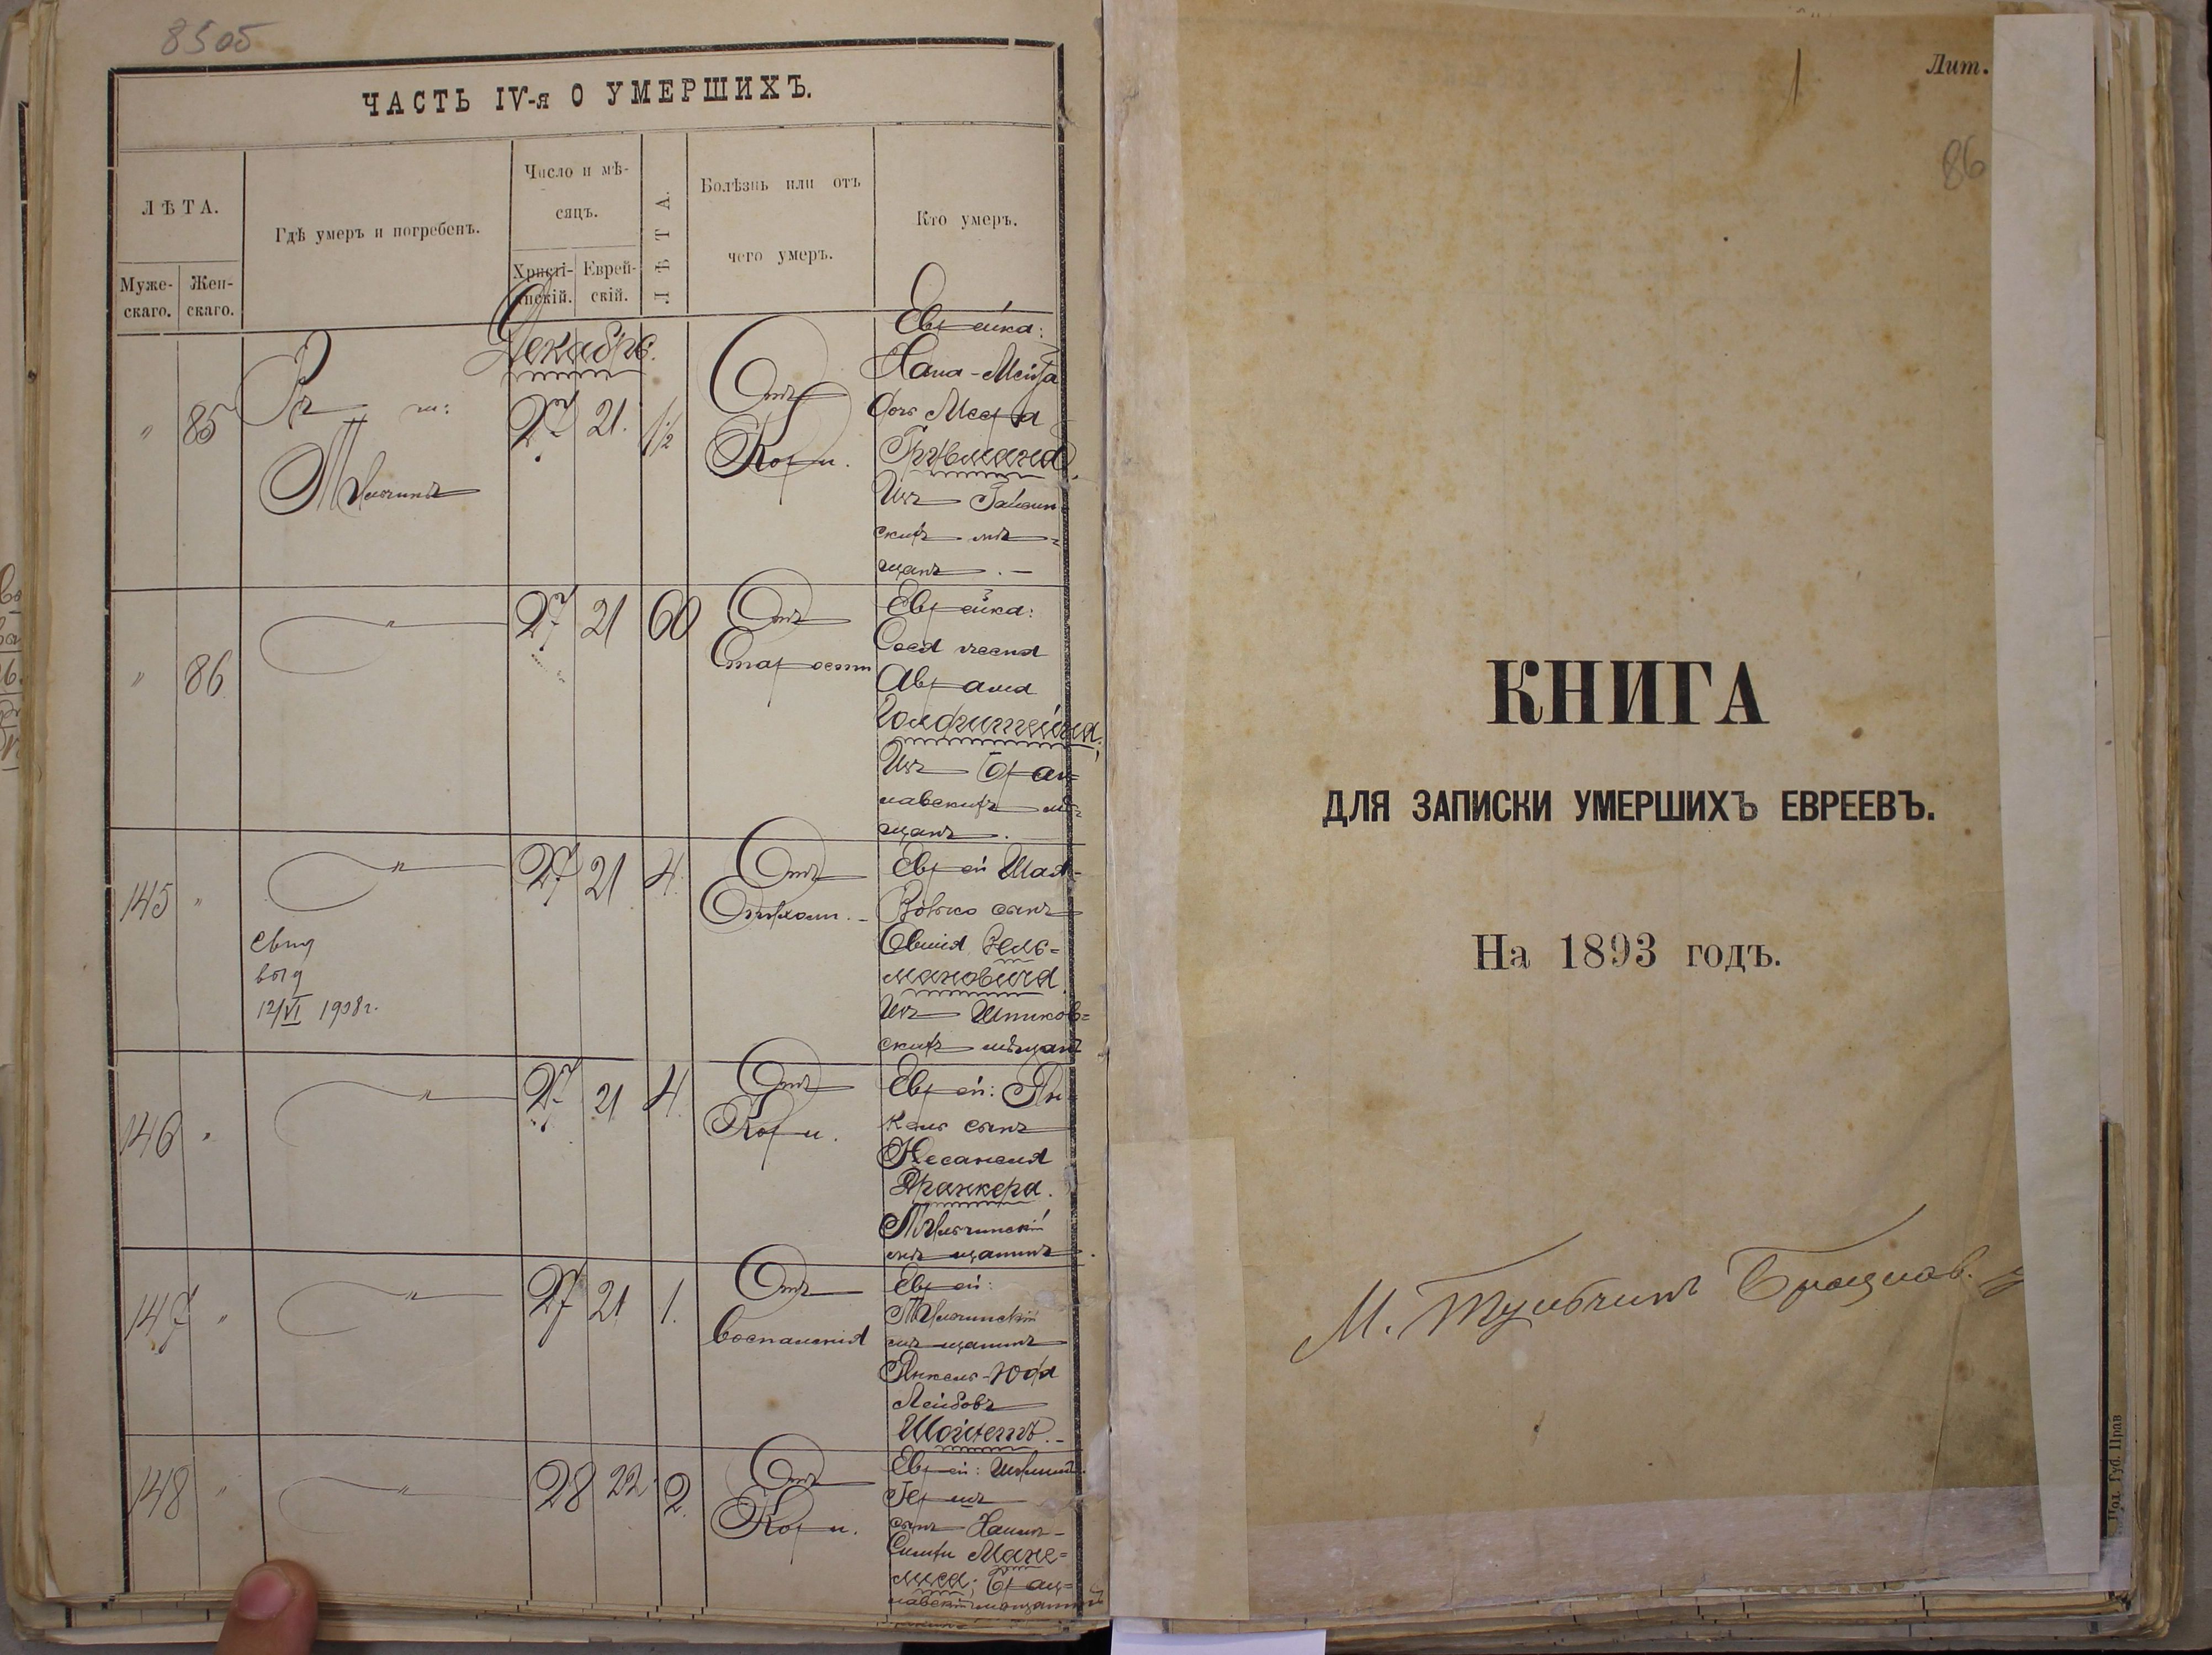 85об
ЧАСТЬ IV-я О УМЕРШИХЪ.
ЛѢТА.
Муже-
скаго.
Жен-
скаго.
Гдѣ умеръ и погребенъ.
Число и мѣ-
сяцъ.
Христі-
анскій.
Еврей-
скій.
ЛѢТА.
Болѣзнь или отъ
чего умеръ.
Кто умеръ.
Декабрь.
"
85
Въ м:
Тульчинѣ
27
21.
1½
Отъ
Кори.
Еврейка:
дочь Меера
Изъ Гайсин
скихъ мѣ=
щанъ . —
"
86
"
27
21
60
Отъ
Старости
Еврейка:
Сося жена
Аврама
Голфштейна.
Изъ Брац=
лавскихъ мѣ=
щанъ.
145
"
"
свид
выд
12/VI 1908г.
27
21
4.
Отъ
Еврей Шая-
Волько сынъ
Евшія Зель=
мановича.
Изъ Шпиков=
скихъ мѣщанъ
146
"
"
27
21
4.
Отъ
Кори.
Еврей: Ян
кель сынъ
Несанеля
Дранкера.
Тульчинскій
мѣщанинъ.
147
"
"
27
21
1.
Отъ
Воспаленія
Еврей:
Тульчинскій
мѣщанинъ
Янкель-Юда
Лейбовъ
Шойхетъ.-
148
"
"
28
22
2.
Отъ
Кори.
Еврей:
Герш
сынъ Хаимъ-
Симхи Мане=
лиса; Брац=
лавскій мѣщанинъ
Лит.
86
КНИГА
ДЛЯ ЗАПИСКИ УМЕРШИХЪ ЕВРЕЕВЪ.
На 1893 годъ.
М. Тульчинъ Брацлав. у
Под. Губ. Прав